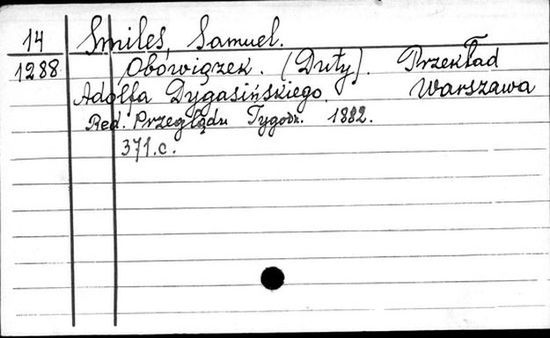 14 Smiles, Samuel.
1288 Obowiązek. (Duty). Przekład
Adolfa Dygasińskiego. Warszawa
Red. Przeglądu Tygodn. 1882.
371.c.